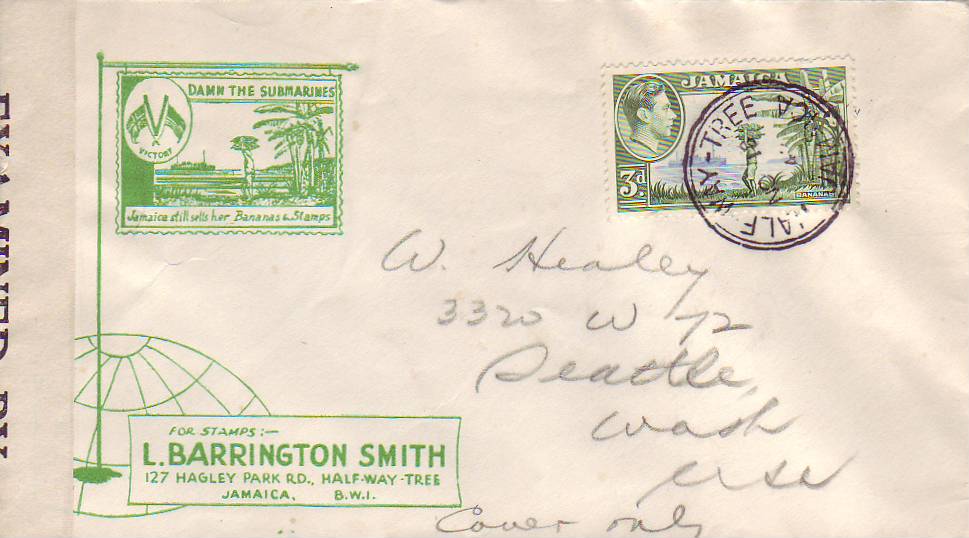 EXAMINED BY
DAMN THE SUBMARINES
VICTORY
Jamaica still sells her Bananas & Stamps
JAMAICA
3d
BANANAS
HALF WAY-TREE JAMAICA
W. Healey
3320 W 72
Seattle,
Wash
USA
Cover only
FOR STAMPS:-
L. BARRINGTON SMITH
127 HAGLEY PARK RD., HALF-WAY-TREE
JAMAICA, B.W.I.